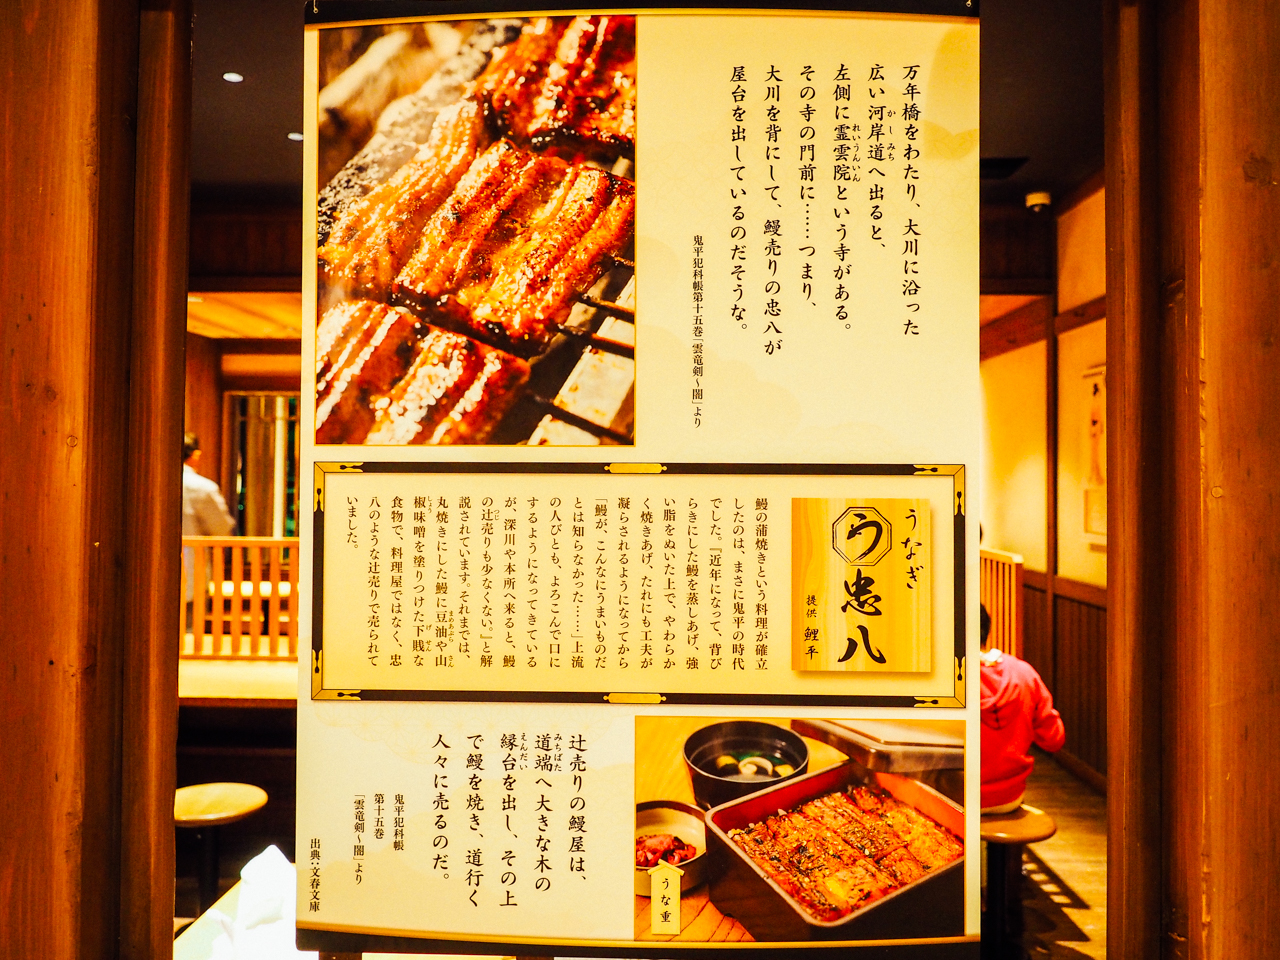 万年橋をわたり、大川に沿った
広い河岸道へ出ると、
かしみち
左側に霊雲院という寺がある。
れいうんいん
その寺の門前に……つまり、
大川を背にして、鰻売りの忠八が
屋台を出しているのだそうな。
鬼平犯科帳第十五巻「雲竜剣〜闇」より
うなぎ
う
忠八
提供 鯉平
鰻の蒲焼きという料理が確立
したのは、まさに鬼平の時代
でした。『近年になって、背び
らきにした鰻を蒸しあげ、強
い脂をぬいた上で、やわらか
く焼きあげ、たれにも工夫が
凝らされるようになってから
「鰻が、こんなにうまいものだ
とは知らなかった……」上流
の人びとも、よろこんで口に
するようになってきている
が、深川や本所へ来ると、鰻
の辻売りも少なくない。』と解
つじ
説されています。それまでは、
丸焼きにした鰻に豆油や山
まめあぶら さん
椒味噌を塗りつけた下賎な
しょう げせん
食物で、料理屋ではなく、忠
八のような辻売りで売られて
いました。
辻売りの鰻屋は、
道端へ大きな木の
みちばた
縁台を出し、その上
えんだい
で鰻を焼き、道行く
人々に売るのだ。
鬼平犯科帳
第十五巻
「雲竜剣〜闇」より
出典:文春文庫
うな重